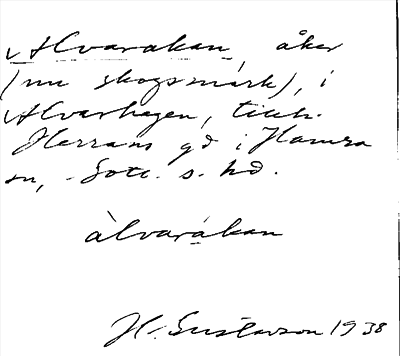 Alvaråkan, åker
(nu skogsmark), i
Alvarhagen, tillh.
Herrans gd i Hamra
sn, Gotl. s. hd.
àlvaråkan
H. Gustavson 1938